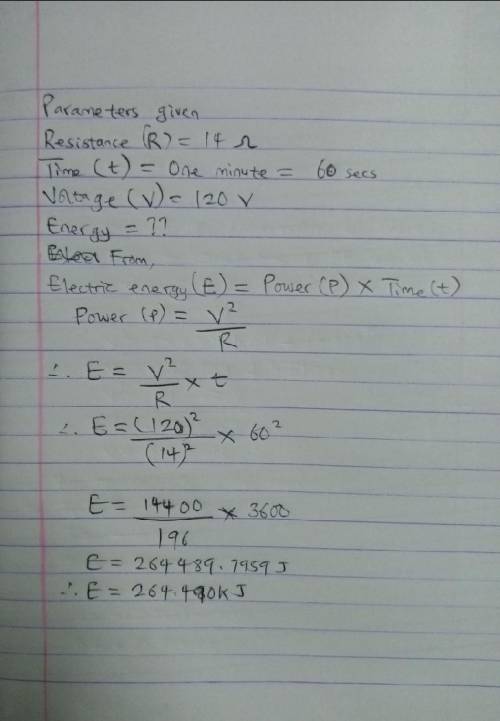 Parameters given
Resistance (R) = 14 Ω
Time (t) = One minute = 60 secs
Voltage (V) = 120 V
Energy = ??
From,
Electric energy (E) = Power (P) × Time (t)
Power (P) = V²/R
∴ E = V²/R × t
∴ E = (120)²/(14)² × 60²
E = 14400/196 × 3600
E = 264489.7959 J
∴ E = 264.490KJ